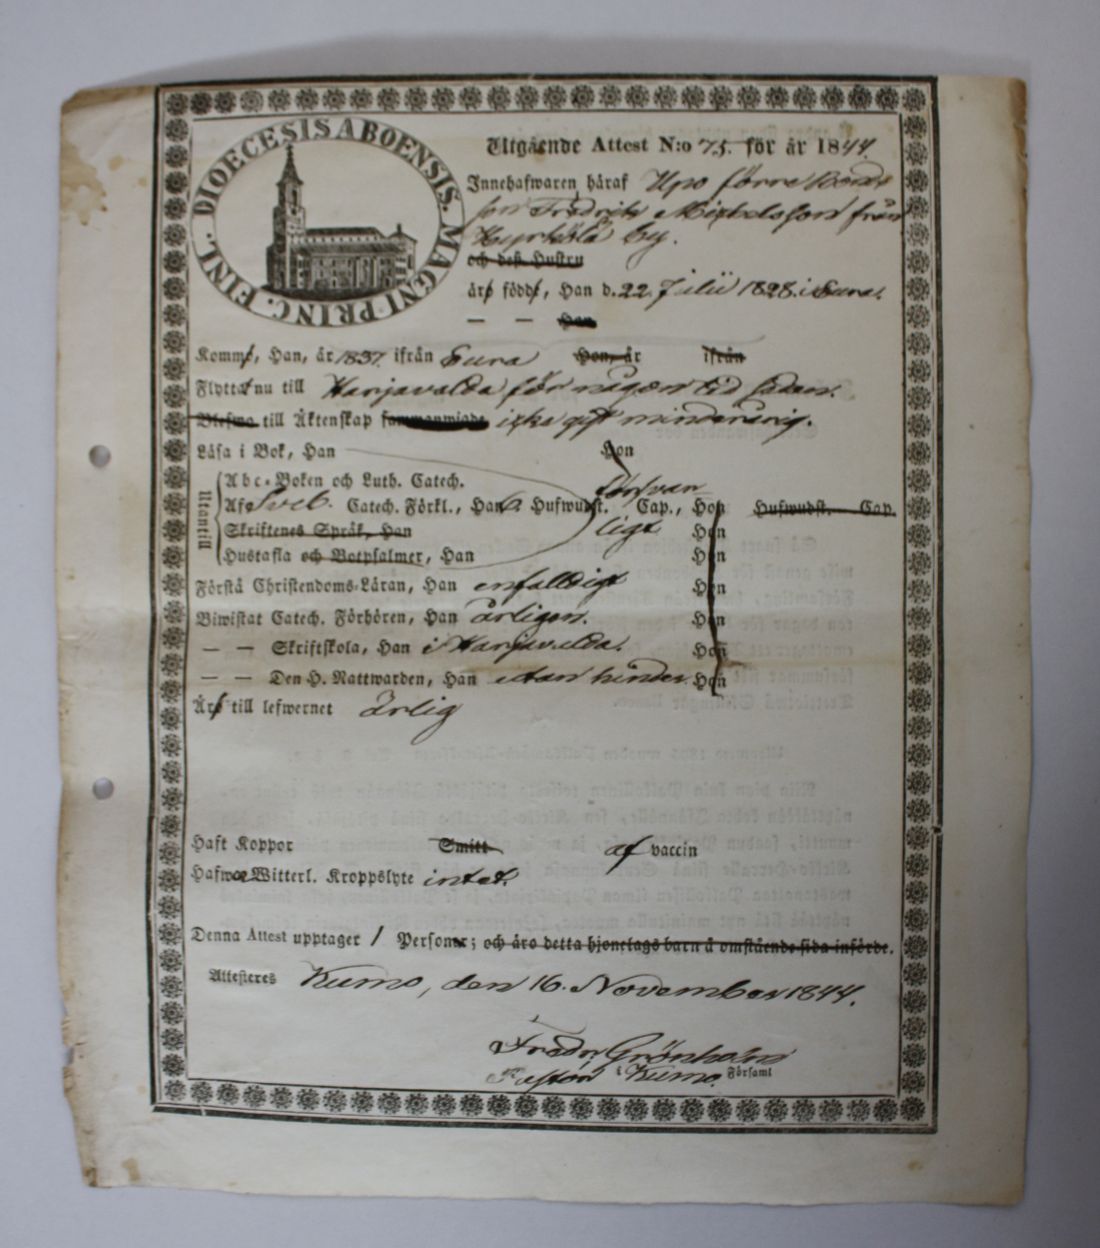 DIOECESIS ABOENSIS. MAGNI PRINC. FINL.
Utgående Attest N:o 75. för år 1844.
Innehafwaren häraf Upo förre Bond
son Fredrik Mikelsson från
by.
och deß Hustru
är född, Han d. 22. Julii 1828. i Eura.
— — Hon
Komm, Han, år 1837. ifrån Eura Hon, år ifrån
Flyttat nu till Harjavalda för någon tid sedan.
till Äktenskap icke gift minderårig.
Läsa i Bok, Han Hon
Utantill
Abc-Boken och Luth. Catech. försvar
Af Sveb. Catech. Förkl., Han 6 Hufwudst. Cap., Hon Hufwudst. Cap.
Skriftenes Språk, Han ligt Hon
Hustafla och Botpsalmer, Han Hon
Förstå Christendoms-Läran, Han enfalldigt Hon
Biwistat Catech. Förhören, Han årligen. Hon
— — Skriftskola, Han i Harjavalda. Hon
— — Den H. Nattwarden, Han utan hinder Hon
Är till lefwernet Ärlig
Haft Koppor Smitt af vaccin
Witterl. Kroppslyte intet.
Denna Attest upptager 1 Person; och äro detta hjonelags barn å omstående sida införde.
Attesteres Kumo, den 16. November 1844.
Fredr. Grönholm
Pastor i Kumo. Församl